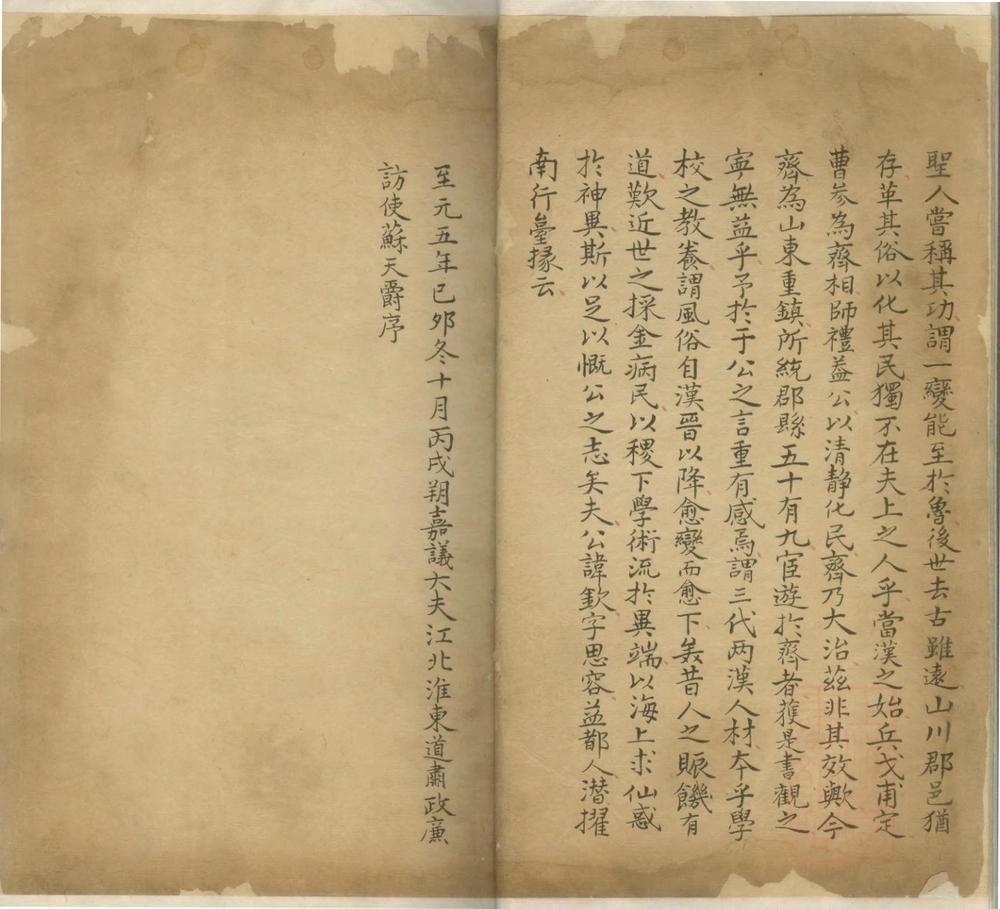 聖人嘗稱其功謂一變能至於魯後世去古雖遠山川郡邑猶
存革其俗以化其民獨不在夫上之人乎當漢之始兵戈甫定
曹參為齊相師禮葢公以清静化民齊乃大治茲非其效歟今
齊為山東重鎮所統郡縣五十有九宦遊於齊者獲是書觀之
寕無益乎予於于公之言重有感焉謂三代两漢人材夲乎學
校之教養謂風俗自漢晉以降愈變而愈下美昔人之賑饑有
道歎近世之採金病民以稷下學術流於異端以海上求仙惑
於神異斯以足以慨公之志矣夫公諱欽字思容益都人潜擢
南行臺掾云
至元五年己夘冬十月丙戌朔嘉議大夫江北淮東道肅政廉
訪使蘇天爵序